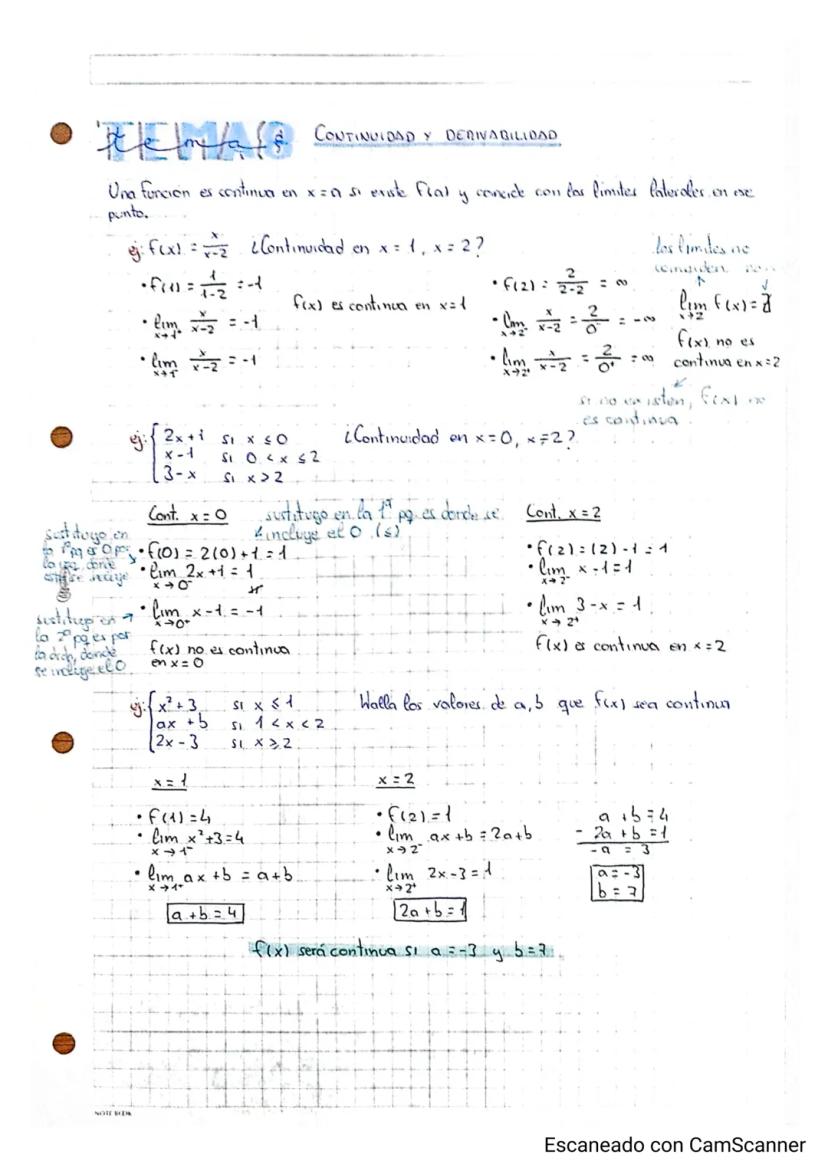 TEMA 8
tema 8 CONTINUIDAD Y DERIVABILIDAD
Una función es continua en x=a si existe f(a) y coincide con los límites laterales en ese
punto.
ej: f(x) = x/(x-2) ¿Continuidad en x = 1, x = 2?
los límites no
coinciden
• f(1) = 1/(1-2) = -1
f(x) es continua en x=1
• lim x→1⁺ x/(x-2) = -1
• lim x→1⁻ x/(x-2) = -1
• f(2) = 2/(2-2) = ∞
• lim x→2⁻ x/(x-2) = 2/0⁻ = -∞
• lim x→2⁺ x/(x-2) = 2/0⁺ = ∞
lim x→2 f(x) = ∄
f(x) no es
continua en x=2
si no existen, f(x) no
es continua
ej: { 2x+1 si x ≤ 0
x-1 si 0 < x ≤ 2
3-x si x > 2
¿Continuidad en x=0, x=2?
Cont. x=0
sustituyo en la 1ª pq es donde se
incluye el 0 (≤)
sustituyo en
la 1ª pq es 0 por
la izq, donde
se incluye
• f(0) = 2(0)+1 = 1
• lim x→0⁻ 2x+1 = 1
• lim x→0⁺ x-1 = -1
sustituyo en
la 2ª pq es por
la drch, donde
se incluye el 0
f(x) no es continua
en x=0
Cont. x=2
• f(2) = (2)-1 = 1
• lim x→2⁻ x-1 = 1
• lim x→2⁺ 3-x = 1
f(x) es continua en x=2
ej: { x²+3 si x ≤ 1
ax + b si 1 < x < 2
2x-3 si x ≥ 2
Halla los valores de a, b que f(x) sea continua
x=1
• f(1)=4
• lim x→1⁻ x²+3=4
• lim x→1⁺ ax+b = a+b
a+b=4
x=2
• f(2)=1
• lim x→2⁻ ax+b = 2a+b
• lim x→2⁺ 2x-3=1
2a+b=1
a+b=4
- 2a+b=1
-a = 3
a=-3
b=7
f(x) será continua si a=-3 y b=7
NOTE BOOK
Escaneado con CamScanner